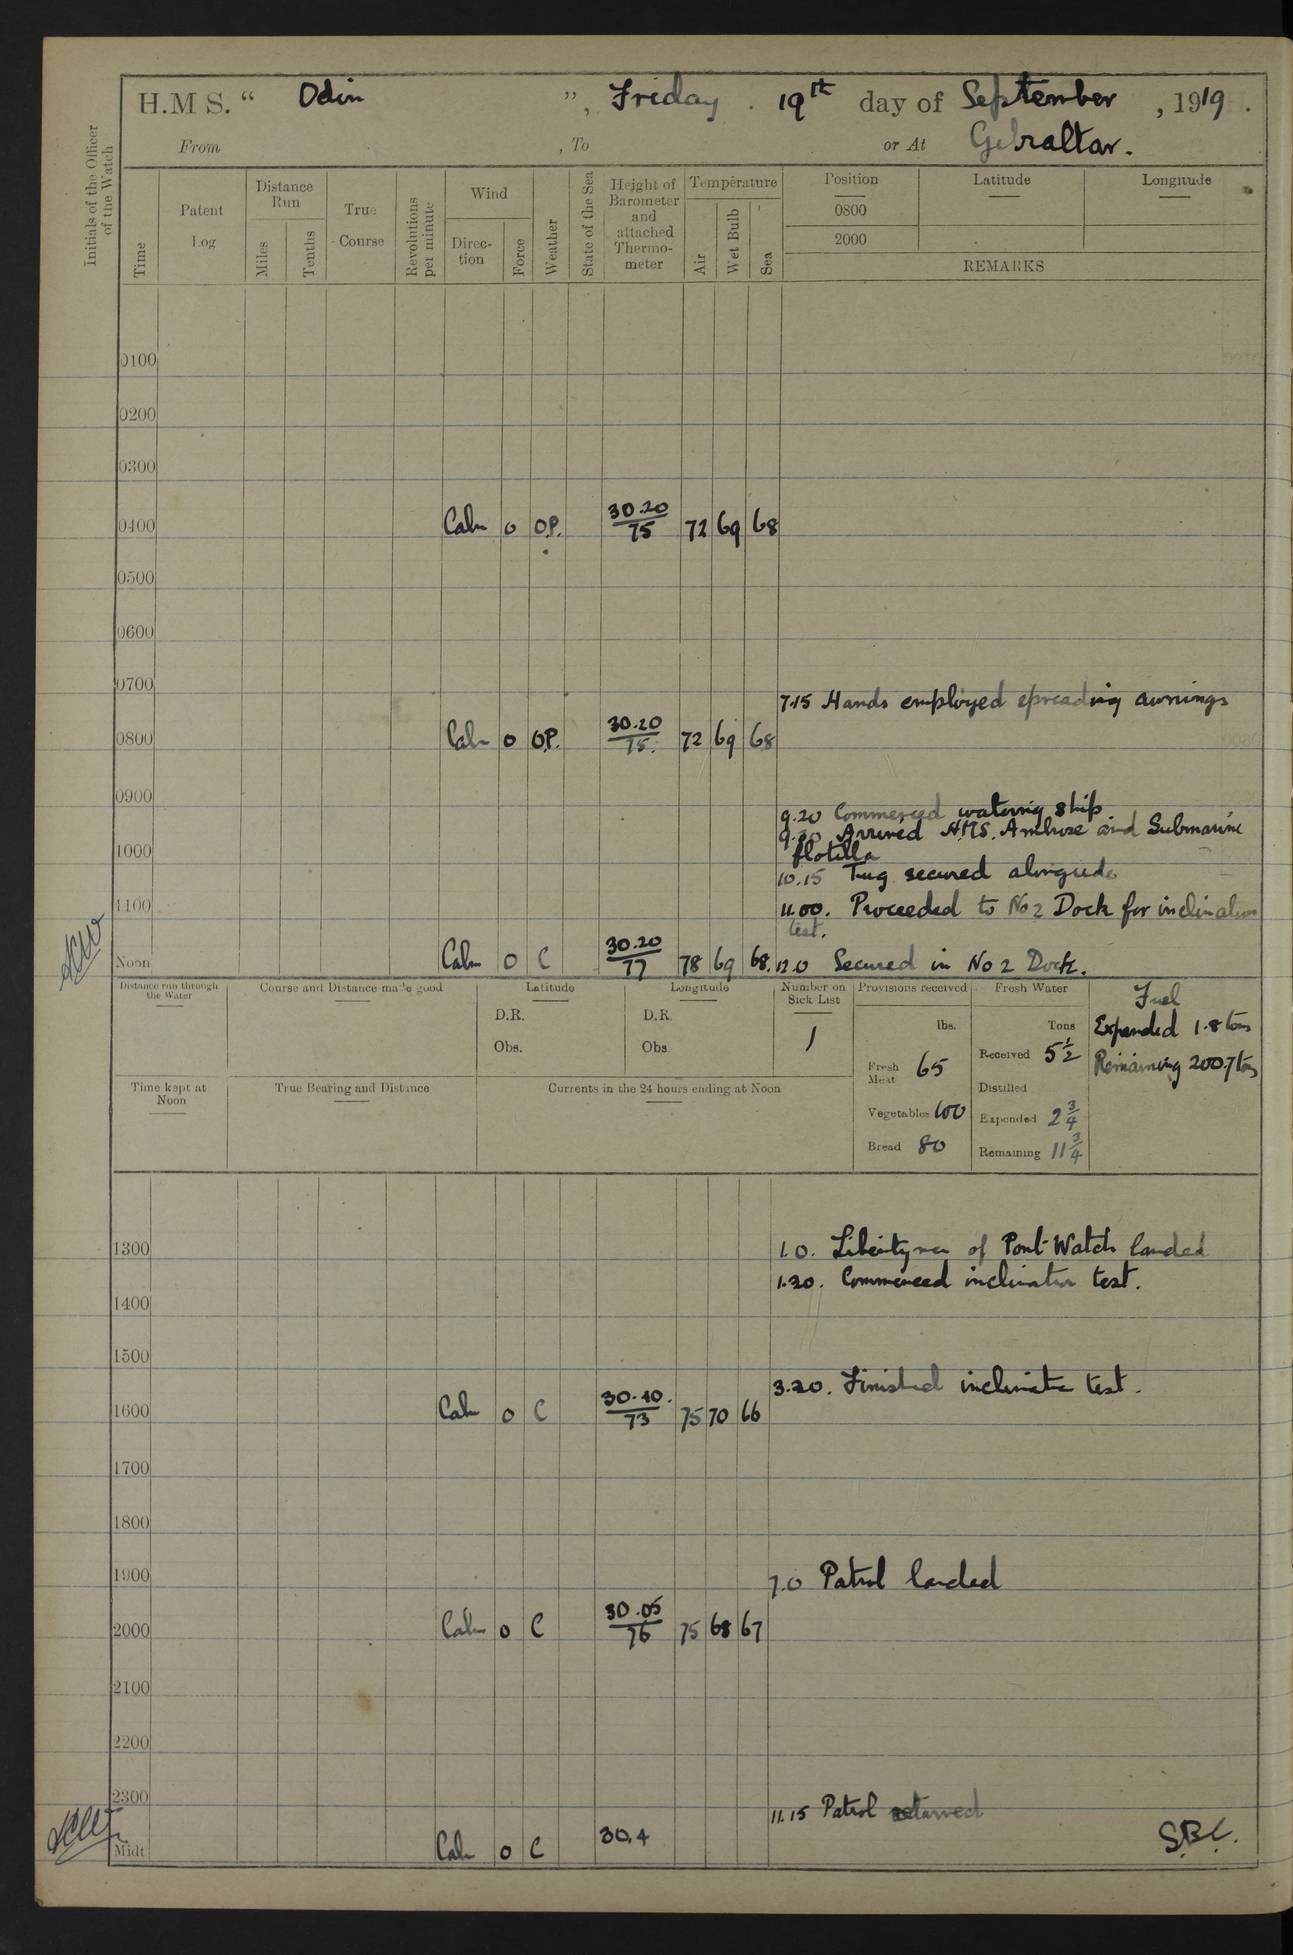 H.M S. “ Odin ”, Friday . 19th day of September , 1919 .
From , To or At Gibraltar.
Initials of the Officer of the Watch
Time
Patent Log
Distance Run
Miles
Tenths
True Course
Revolutions per minute
Wind
Direc-tion
Force
Weather
State of the Sea
Height of Barometer and attached Thermo-meter
Température
Air
Wet Bulb
Sea
Position Latitude Longitude
0800
2000
REMARKS
0100
0200
0300
0400 Calm 0 O.P. 30.20/75 72 69 68
0500
0600
0700
7.15 Hands employed spreading awnings
0800 Calm 0 O.P. 30.20/75. 72 69 68
0900
9.20 Commenced watering ship
9.30 Arrived H.M.S. Ambrose and Submarine
flotilla
1000
10.15 Tug secured alongside
1100
11.00. Proceeded to No 2 Dock for inclination
test.
Noon Calm 0 C 30.20/77 78 69 68. 12.0 Secured in No 2 Dock.
Distance run through the Water
Course and Distance made good
Latitude
D.R.
Obs.
Longitude
D.R.
Obs
Number on Sick List
1
Provisions received
lbs.
Fresh Meat 65
Vegetables 100
Bread 80
Fresh Water
Tons
Received 5½
Distilled
Expended 2¾
Remaining 11¾
Fuel
Expended 1.8 tons
Remaining 200.7 tons
Time kept at Noon
True Bearing and Distance
Currents in the 24 hours ending at Noon
1300
1.0. Libertymen of Port Watch landed
1.20. Commenced inclination test.
1400
1500
3.20. Finished inclination test.
1600 Calm 0 C 30.10./73 75 70 66
1700
1800
1900
7.0 Patrol landed
2000 Calm 0 C 30.05/76 75 68 67
2100
2200
2300
11.15 Patrol returned
Midt Calm 0 C 30.4
S.B.C.